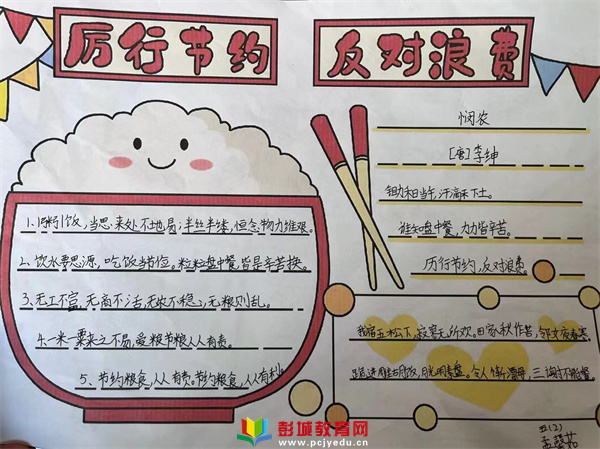 厉行节约
反对浪费
悯农
[唐]李绅
锄禾日当午,汗滴禾下土。
谁知盘中餐,力力皆辛苦。
厉行节约,反对浪费。
1.
饭,当思来处不
易;半丝半缕,恒念物力维艰。
2.饮水
思源,吃饭
节俭。粒粒盘中餐皆是辛苦换。
3.无工不富,无商不活,无农不稳,无粮则乱。
4.一米一粟来之不易,爱粮节粮人人有责。
5、节约粮食,人人有责。节约粮食,人人有利。
我宿五松下,寂寥无所欢。田家秋作苦,邻女夜舂寒。
跪进
月光明素盘。令人惭漂母,三
不能餐。
五(2)
孟馨茹
彭城教育网
www.pcjyedu.cn